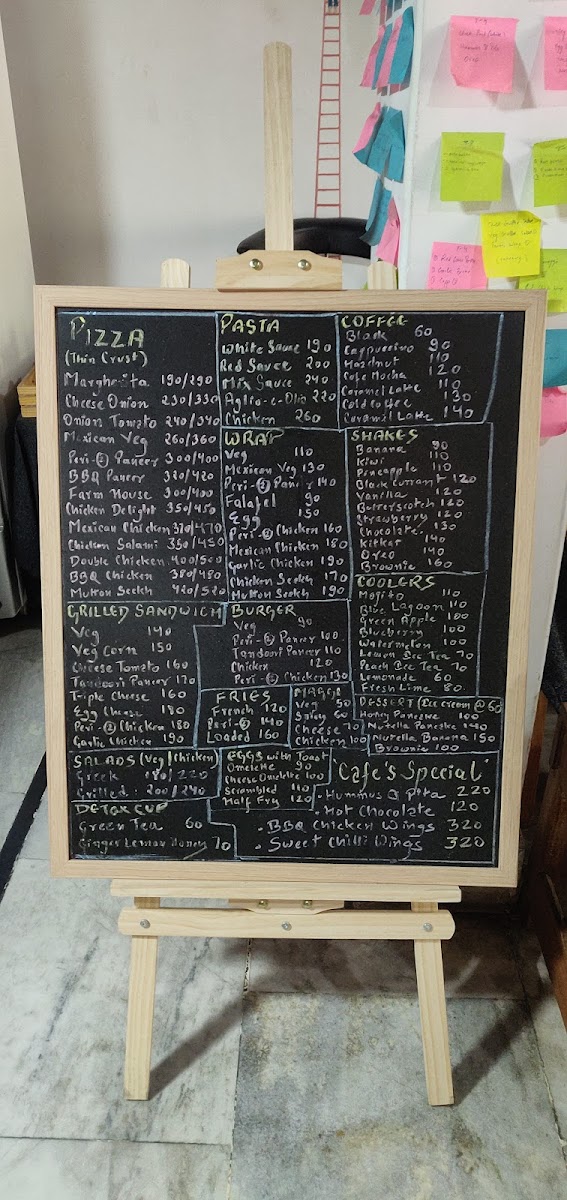 PIZZA
(Thin Crust)
Margherita 190/290
Cheese Onion 230/330
Onion Tomato 240/340
Mexican Veg 260/360
Peri-② Paneer 300/400
BBQ Paneer 320/420
Farm House 300/400
Chicken Delight 350/450
Mexican Chicken 370/470
Chicken Salami 350/450
Double Chicken 400/500
BBQ Chicken 380/480
Mutton Seekh 420/520
PASTA
White Sauce 190
Red Sauce 200
Mix Sauce 240
Aglio-e-Olio 220
Chicken 260
COFFEE
Black 60
Cappuccino 90
Hazelnut 110
Cafe Mocha 120
Caramel Latte 110
Cold coffee 130
Caramel Latte 140
WRAP
Veg 110
Mexican Veg 130
Peri-② Paneer 140
Falafel 90
Egg 150
Peri-② Chicken 160
Mexican Chicken 180
Garlic Chicken 190
Chicken Seekh 170
Mutton Seekh 190
SHAKES
Banana 90
Kiwi 110
Pineapple 110
Black currant 120
Vanilla 120
Butterscotch 120
Strawberry 120
Chocolate 130
Kitkat 140
Oreo 140
Brownie 160
COOLERS
Mojito 110
Blue Lagoon 110
Green Apple 100
Blueberry 100
Watermelon 100
Lemon Ice Tea 70
Peach Ice Tea 70
Lemonade 60
Fresh Lime 80
GRILLED SANDWICH
Veg 140
Veg Corn 150
Cheese Tomato 160
Tandoori Paneer 170
Triple Cheese 160
Egg Cheese 180
Peri-② Chicken 180
Garlic Chicken 190
BURGER
Veg 90
Peri-② Paneer 100
Tandoori Paneer 110
Chicken 120
Peri-② Chicken 130
FRIES
French 120
Peri-② 140
Loaded 160
MAGGIE
Veg 50
Spicy 60
Cheese 70
Chicken 100
DESSERT (Ice cream @ 60
Honey Pancake 100
Nutella Pancake 140
Nutella Banana 150
Brownie 100
SALADS (Veg | Chicken)
Greek 180/220
Grilled: 200/240
EGGS with Toast
Omelette 90
Cheese Omelette 100
Scrambled 110
Half Fry 120
"Cafe's Special"
• Hummus & Pita 220
• Hot Chocolate 120
• BBQ Chicken Wings 320
• Sweet Chilli Wings 320
DETOX CUP
Green Tea 60
Ginger Lemon Honey 70